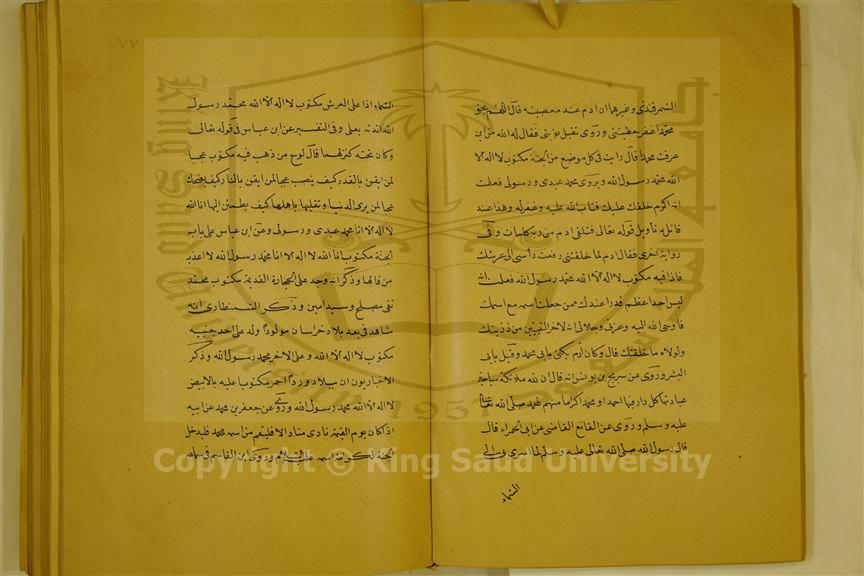 السمرقندي وغيرهما ان ادم عند معصيته قال اللهم بحق
محمد اغفر خطيئتي وروى تقبل توبتي فقال له الله من اين
عرفت محمدا قال رايت في كل موضع من الجنة مكتوب لا اله الا
الله محمد رسول الله ويروى محمد عبدى ورسولى فعلمت
انه اكرم خلقك عليك فتاب الله عليه وغفر له وهذا عند
قائله تأويل قوله تعالى فتلقى ادم من ربه كلمات وفي
رواية اخرى فقال ادم لما خلقتنى رفعت رأسى الى عرشك
فاذا فيه مكتوب لا اله الا الله محمد رسول الله فعلمت انه
ليس احد اعظم قدرا عندك ممن جعلت اسمه مع اسمك
فاوحى الله اليه وعزتى وجلالى انه لاخر النبيين من ذريتك
ولولاه ما خلقتك قال وكان ادم يكنى بابى محمد وقيل بابى
البشر وروى عن سريج بن يونس انه قال ان لله ملائكة سياحين
عبادتها كل دار فيها احمد او محمد اكراما منهم لمحمد صلى الله تعالى
عليه وسلم وروى عن القانع القاضى عن ابى الحمراء قال
قال رسول الله صلى الله تعالى عليه وسلم لما اسرى بى الى
السماء
٧٧
السماء اذا على العرش مكتوب لا اله الا الله محمد رسول
الله ايدته بعلى وفى التفسير عن ابن عباس فى قوله تعالى
وكان تحته كنز لهما قال لوح من ذهب فيه مكتوب عجبا
لمن ايقن بالقدر كيف ينصب عجبا لمن ايقن بالنار كيف يضحك
عجبا لمن يرى الدنيا وتقلبها باهلها كيف يطمئن اليها انا الله
لا اله الا انا محمد عبدى ورسولى وعن ابن عباس على باب
الجنة مكتوب انا الله لا اله الا انا محمد رسول الله لا اعذب
من قالها وذكر انه وجد على الحجارة القديمة مكتوب محمد
تقى مصلح وسيد امين وذكر السمنطارى انه
شاهد فى بعض بلاد خراسان مولودا ولد على احد جنبيه
مكتوب لا اله الا الله وعلى الاخر محمد رسول الله وذكر
الاخباريون ان ببلاد وردا احمر مكتوبا عليه بالابيض
لا اله الا الله محمد رسول الله وروى عن جعفر بن محمد عن ابيه
اذا كان يوم القيمة نادى مناد الا ليقم من اسمه محمد فليدخل
الجنة لكرامة اسمه عليه السلام وروى ابن القاسم فى سماعه
Copyright © King Saud University